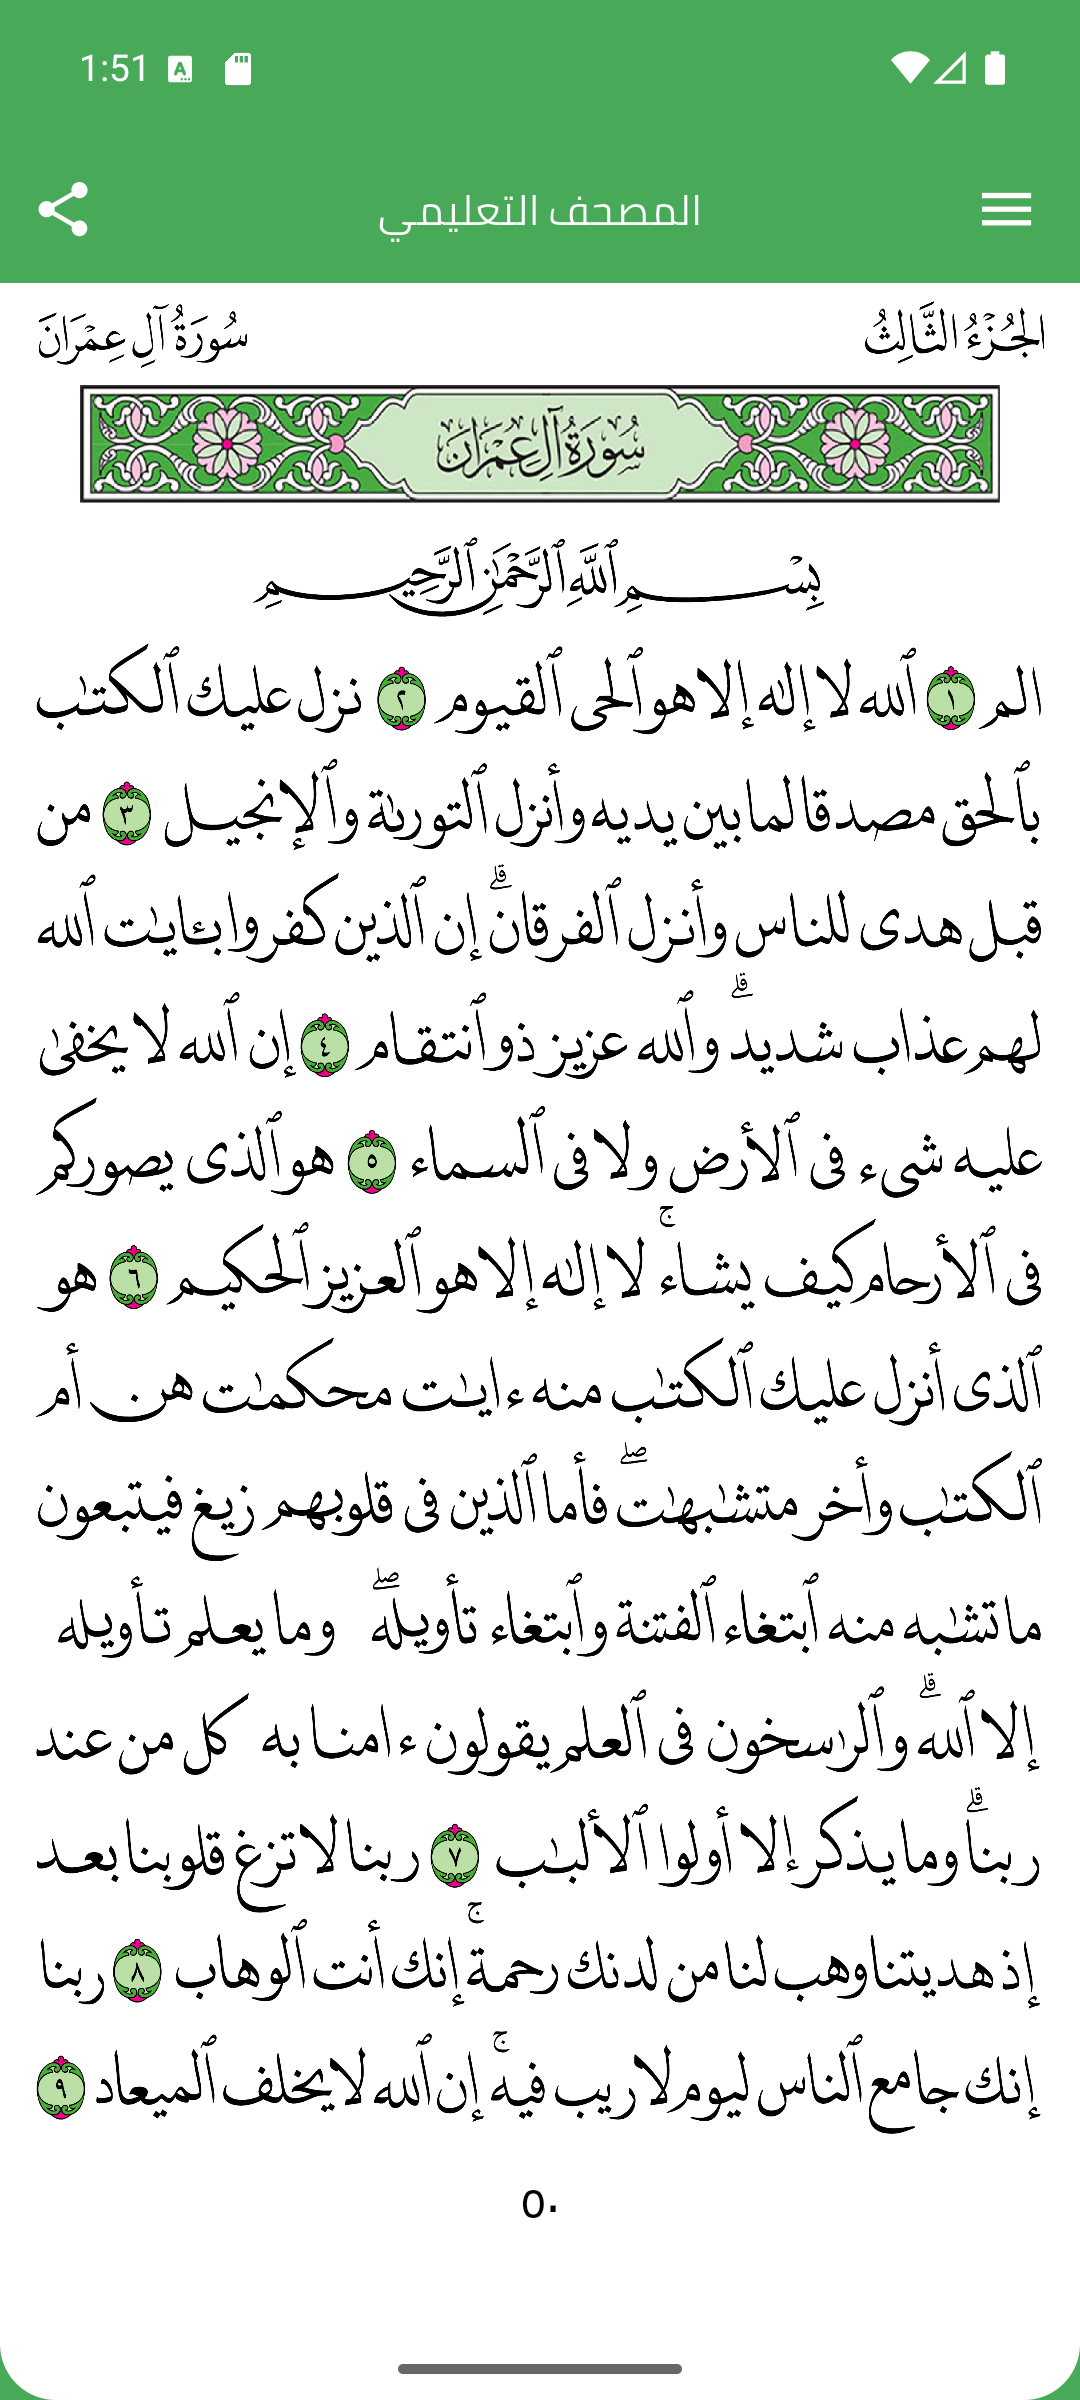 1:51
المصحف التعليمي
الجُزْءُ الثَّالِثُ
سُورَةُ آلِ عِمْرَانَ
سُورَةُ آلِ عِمْرَانَ
بِسْمِ ٱللَّهِ ٱلرَّحْمَٰنِ ٱلرَّحِيمِ
الم ١ ٱلله لا إلٰه إلا هو ٱلحى ٱلقيوم ٢ نزل عليك ٱلكتٰب
بٱلحق مصدقا لما بين يديه وأنزل ٱلتورىٰة وٱلإنجيل ٣ من
قبل هدى للناس وأنزل ٱلفرقانۗ إن ٱلذين كفروا بـٔايٰت ٱلله
لهم عذاب شديدۗ وٱلله عزيز ذو ٱنتقام ٤ إن ٱلله لا يخفىٰ
عليه شىء فى ٱلأرض ولا فى ٱلسماء ٥ هو ٱلذى يصوركم
فى ٱلأرحام كيف يشاءۚ لا إلٰه إلا هو ٱلعزيز ٱلحكيم ٦ هو
ٱلذى أنزل عليك ٱلكتٰب منه ءايٰت محكمٰت هن أم
ٱلكتٰب وأخر متشٰبهٰتۖ فأما ٱلذين فى قلوبهم زيغ فيتبعون
ما تشٰبه منه ٱبتغاء ٱلفتنة وٱبتغاء تأويلهۖ وما يعلم تأويله
إلا ٱللهۗ وٱلرٰسخون فى ٱلعلم يقولون ءامنا به كل من عند
ربناۗ وما يذكر إلا أولوا ٱلألبٰب ٧ ربنا لا تزغ قلوبنا بعد
إذ هديتنا وهب لنا من لدنك رحمةۚ إنك أنت ٱلوهاب ٨ ربنا
إنك جامع ٱلناس ليوم لا ريب فيهۚ إن ٱلله لا يخلف ٱلميعاد ٩
٥٠